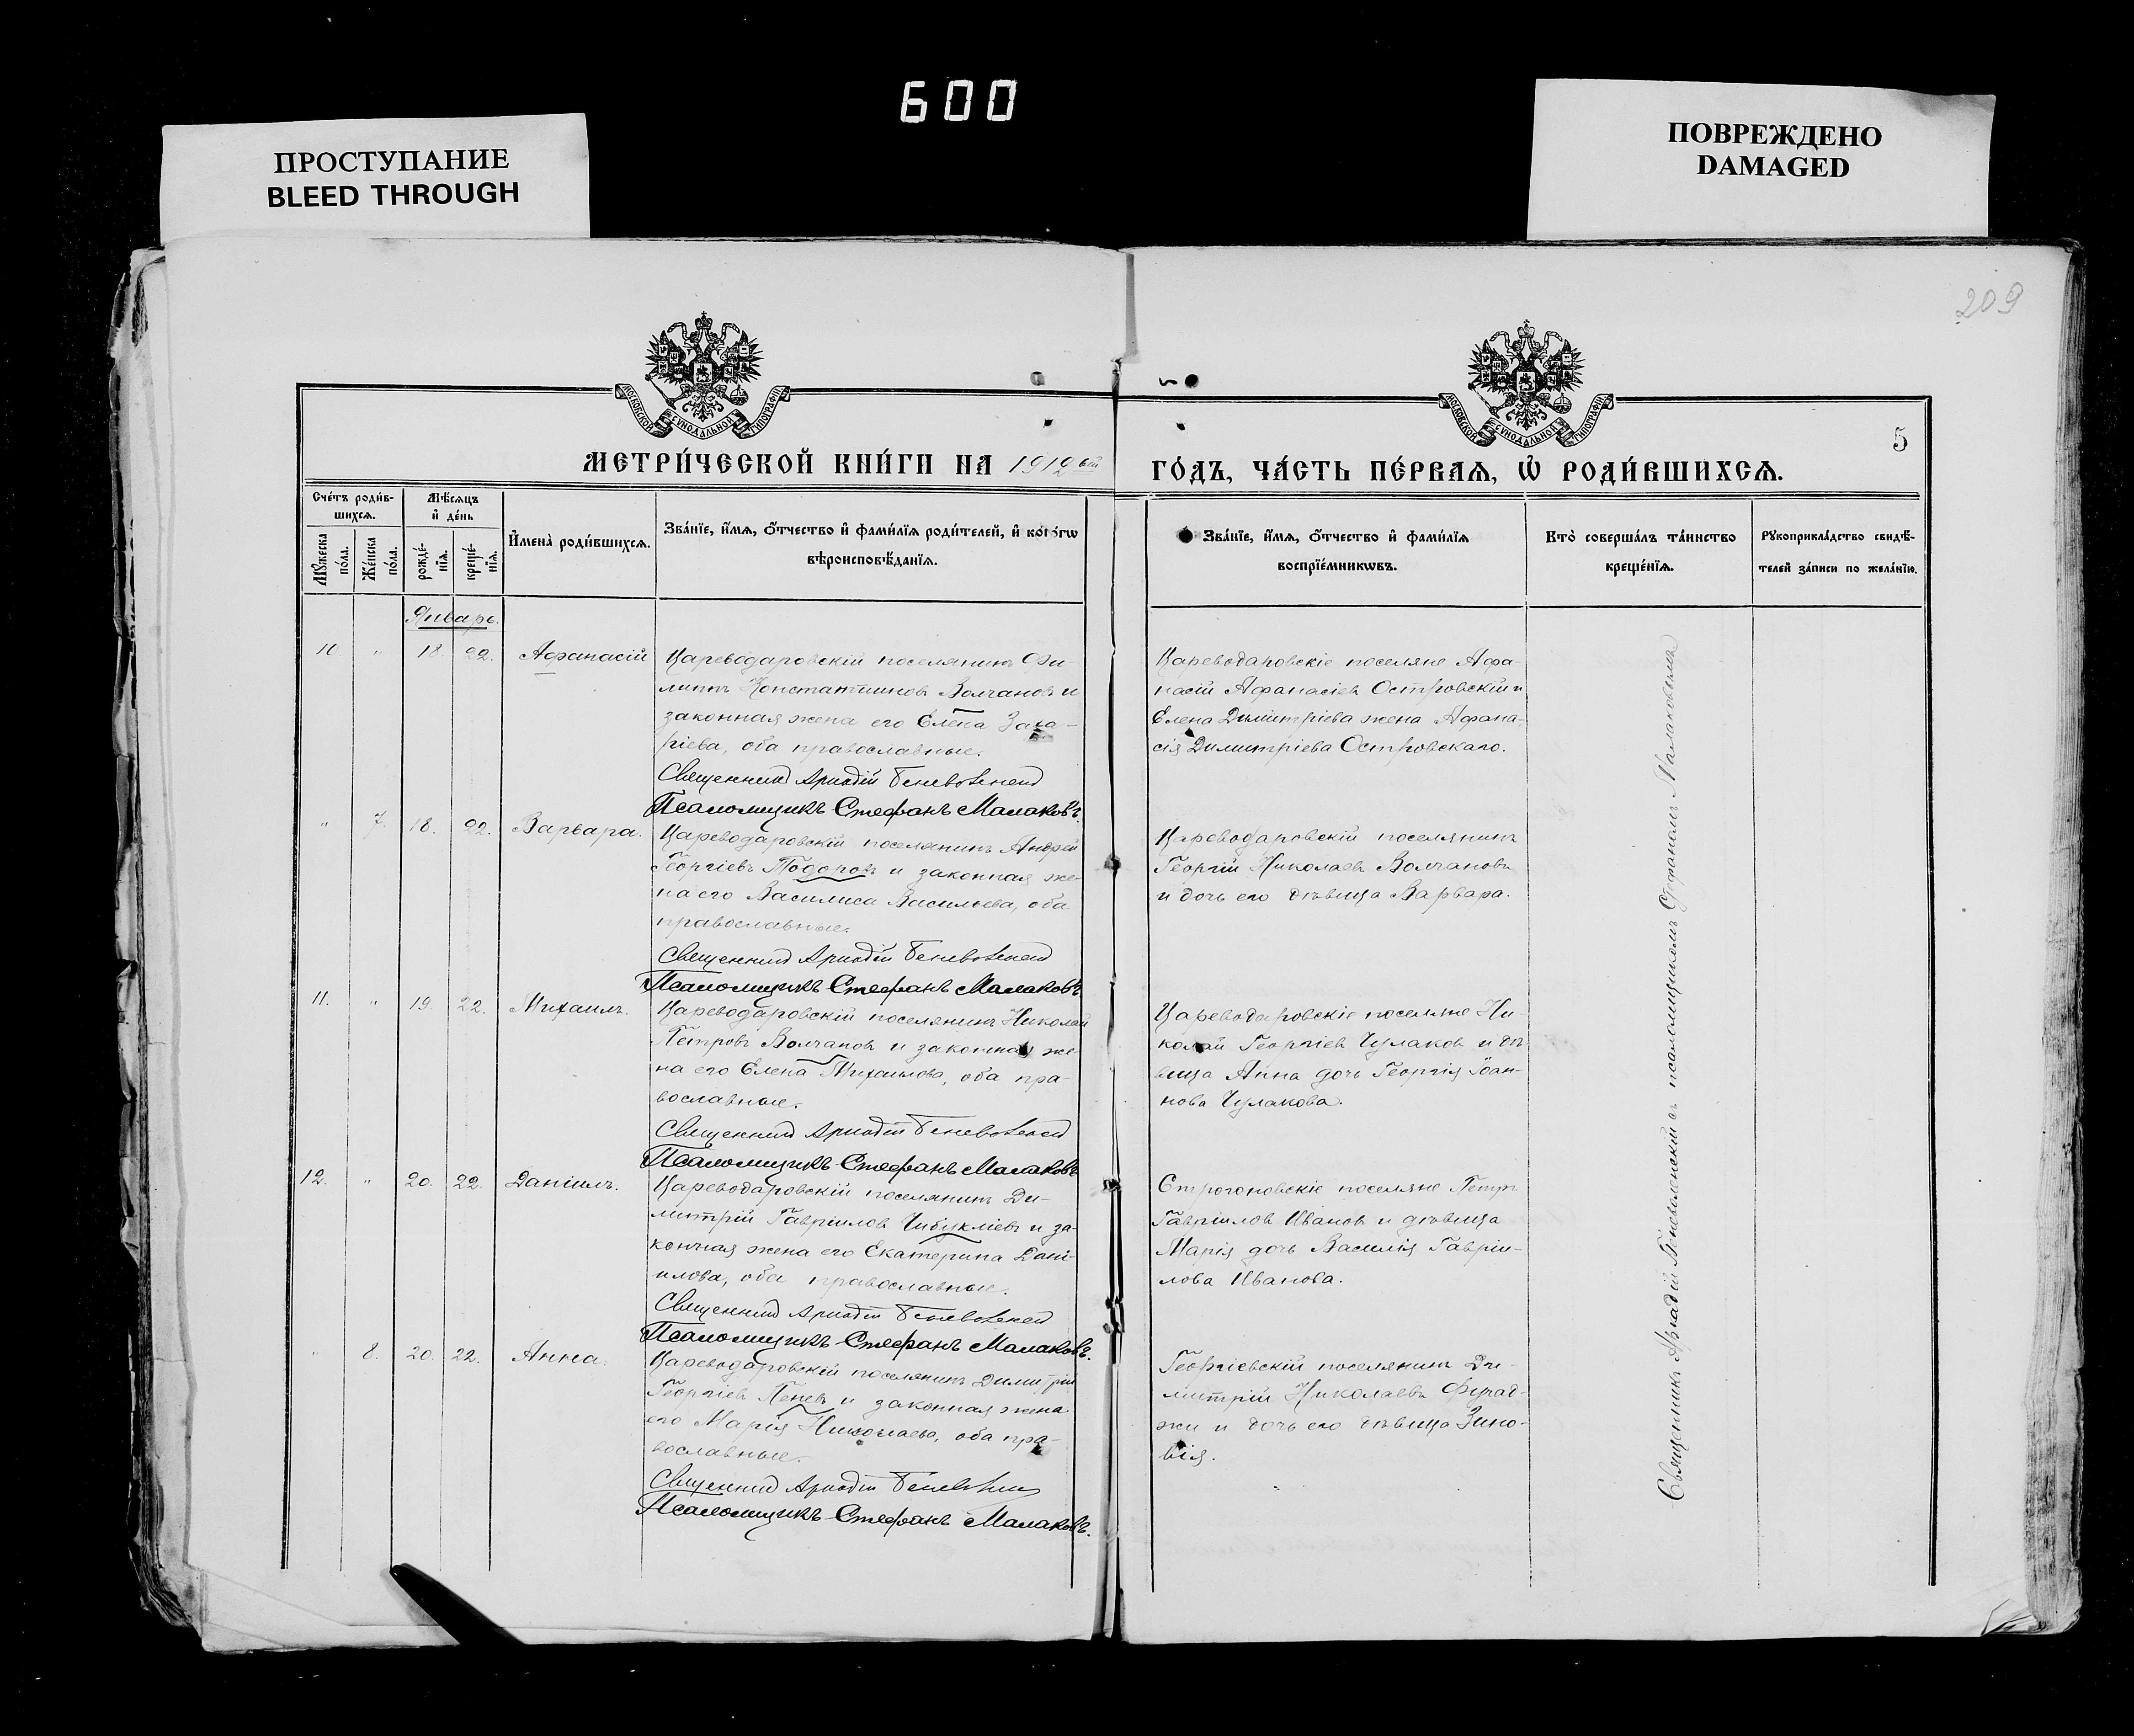 600
ПРОСТУПАНИЕ
BLEED THROUGH
ПОВРЕЖДЕНО
DAMAGED
209
МОСКОВСКОЙ СѴНОДАЛЬНОЙ ТИПОГРАФІИ
МОСКОВСКОЙ СѴНОДАЛЬНОЙ ТИПОГРАФІИ
5
МЕТРИ́ЧЕСКОЙ КНИ́ГИ НА 1912 ый
ГО́ДЪ, ЧА́СТЬ ПЕ́РВАЯ, Ѽ РОДИ́ВШИХСЯ.
Сче́тъ роди́в-
шихся.
Мѣ́сяцъ
и҆ де́нь
Мꙋ́жеска по́ла.
Же́нска по́ла.
рожде́-
нїя.
креще́-
нїя.
И҆мена̀ роди́вшихся.
Зва́нїе, и҆́мя, о҆́тчество и҆ фами́лїя роди́телей, и҆ кото́рагѡ
вѣроисповѣ́данїя.
Зва́нїе, и҆́мя, о҆́тчество и҆ фами́лїя
воспрїе́мникѡвъ.
Кто̀ соверша́лъ та́инство
креще́нїя.
Рꙋкоприкла́дство свидѣ́-
телей за́писи по жела́нїю.
Январь.
10 " 18. 22. Афанасій
Цареводаровскій поселянинъ Фи-
липпъ Константиновъ Волчановъ и
законная жена его Елена Заха-
ріева, оба православные.
Священникъ Аркадій Беневоленскій
Псаломщикъ Стефанъ Малаковъ.
Цареводаровскіе поселяне Афа-
насій Афанасіевъ Островскій и
Елена Димитріева жена Афана-
сія Димитріева Островскаго.
" 7. 18. 22. Варвара.
Цареводаровскій поселянинъ Андрей
Георгіевъ Тодоровъ и законная же-
на его Василиса Васильева, оба
православные.
Священникъ Аркадій Беневоленскій
Псаломщикъ Стефанъ Малаковъ
Цареводаровскій поселянинъ
Георгій Николаевъ Волчановъ
и дочь его дѣвица Варвара.
11. " 19. 22. Михаилъ.
Цареводаровскій поселянинъ Николай
Петровъ Волчановъ и законная же-
на его Елена Михаилова, оба пра-
вославные.
Священникъ Аркадій Беневоленскій
Псаломщикъ Стефанъ Малаковъ
Цареводаровскіе поселяне Ни-
колай Георгіевъ Чулаковъ и дѣ-
вица Анна дочь Георгія Іоан-
нова Чулакова.
12. " 20. 22. Даніилъ.
Цареводаровскій поселянинъ Ди-
митрій Гавріиловъ Чибукліевъ и за-
конная жена его Екатерина Дані-
илова, оба православные.
Священникъ Аркадій Беневоленскій
Псаломщикъ Стефанъ Малаковъ.
Строгоновскіе поселяне Петръ
Гавріиловъ Ивановъ и дѣвица
Марія дочь Василія Гавріи-
лова Иванова.
" 8. 20. 22. Анна.
Цареводаровскій поселянинъ Димитрій
Георгіевъ Пеневъ и законная жена
его Марія Николаева, оба пра-
вославные.
Священникъ Аркадій Беневоленскій
Псаломщикъ Стефанъ Малаковъ.
Георгіевскій поселянинъ Ди-
митрій Николаевъ Фурад-
жи и дочь его дѣвица Зино-
вія.
Священникъ Аркадій Беневоленскій съ псаломщикомъ Стефаномъ Малаковымъ